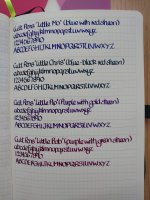 Cult Pens "Little Mo" (blue with red sheen)
abcdefghijklmnopqrstuvwxyz
1234567890
ABCDEFGHIJKLMNOPQRSTUVWXYZ
Cult Pens "Little Chris" (blue-black red sheen)
abcdefghijklmnopqrstuvwxyz
1234567890
ABCDEFGHIJKLMNOPQRSTUVWXYZ
Cult Pens "Little Flo" (Purple with gold sheen)
abcdefghijklmnopqrstuvwxyz
1234567890
ABCDEFGHIJKLMNOPQRSTUVWXYZ
Cult Pens "Little Bob" (purple with green sheen)
abcdefghijklmnopqrstuvwxyz
1234567890
ABCDEFGHIJKLMNOPQRSTUVWXYZ